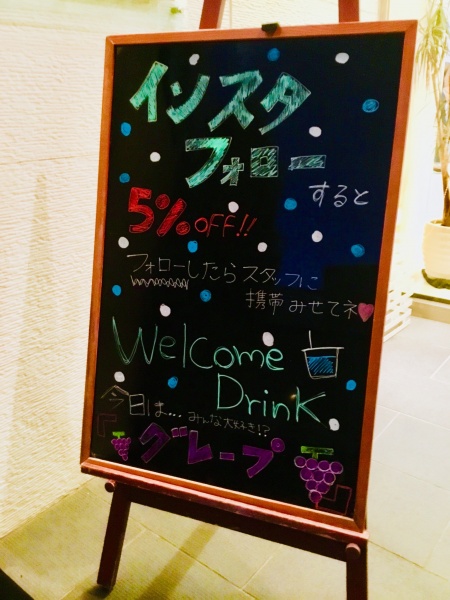 インスタ
フォロー
すると
5%OFF!!
フォローしたらスタッフに
携帯みせてネ
Welcome
Drink
今日は...みんな大好き!?
グレープ